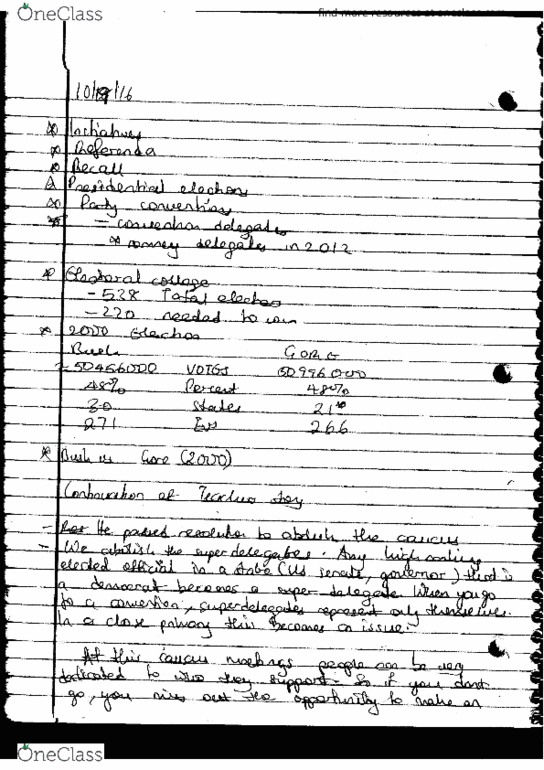 OneClass
find more resources at oneclass.com
10/19/16
* Initiatives
* Referenda
* Recall
* Presidential elections
* Party conventions
* - convention delegates
* romney delegates in 2012
* Electoral college
- 538 Total electors
- 220 needed to win
* 2000 Elections
Bush GORE
50456000 VOTES 50996000
48% Percent 48%
30 States 21
271 EVs 266
* Bush vs Gore (2000)
Continuation of story
- He passed resolution to abolish the caucus
- We abolish the superdelegates. Any high ranking
elected official in a state (US senate, governor) that is
a democrat becomes a super-delegate When you go
to a convention, superdelegates represent only themselves.
In a close primary this becomes an issue.
At this caucus meetings people can be very
dedicated to who they support. So if you don't
go, you miss out the opportunity to make an
OneClass